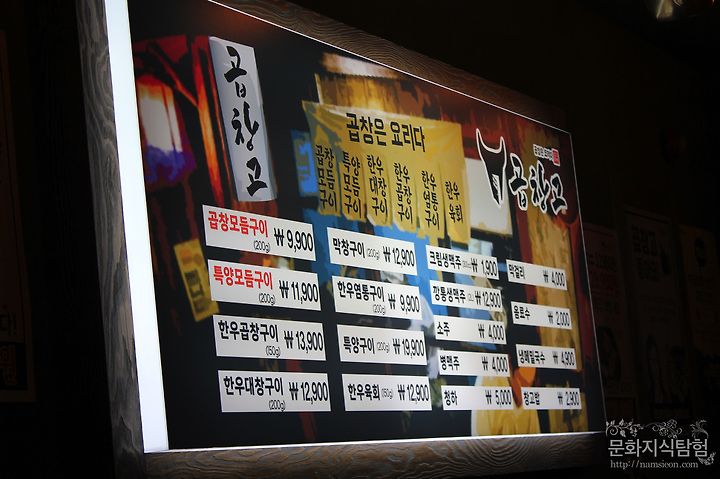 곱창고
곱창은 요리다
곱창모듬구이
특양모듬구이
한우대창구이
한우곱창구이
한우염통구이
한우육회
곱창고
곱창모듬구이 (200g) ₩9,900
특양모듬구이 (200g) ₩11,900
한우곱창구이 (150g) ₩13,900
한우대창구이 (200g) ₩12,900
막창구이 (200g) ₩12,900
한우염통구이 (200g) ₩9,900
특양구이 (200g) ₩19,900
한우육회 (150g) ₩12,900
크림생맥주 ₩1,900
깡통생맥주 ₩12,900
소주 ₩4,000
병맥주 ₩4,000
청하 ₩5,000
막걸리 ₩4,000
음료수 ₩2,000
냉메밀국수 ₩4,900
창고밥 ₩2,900
문화지식탐험
http://namsieon.com